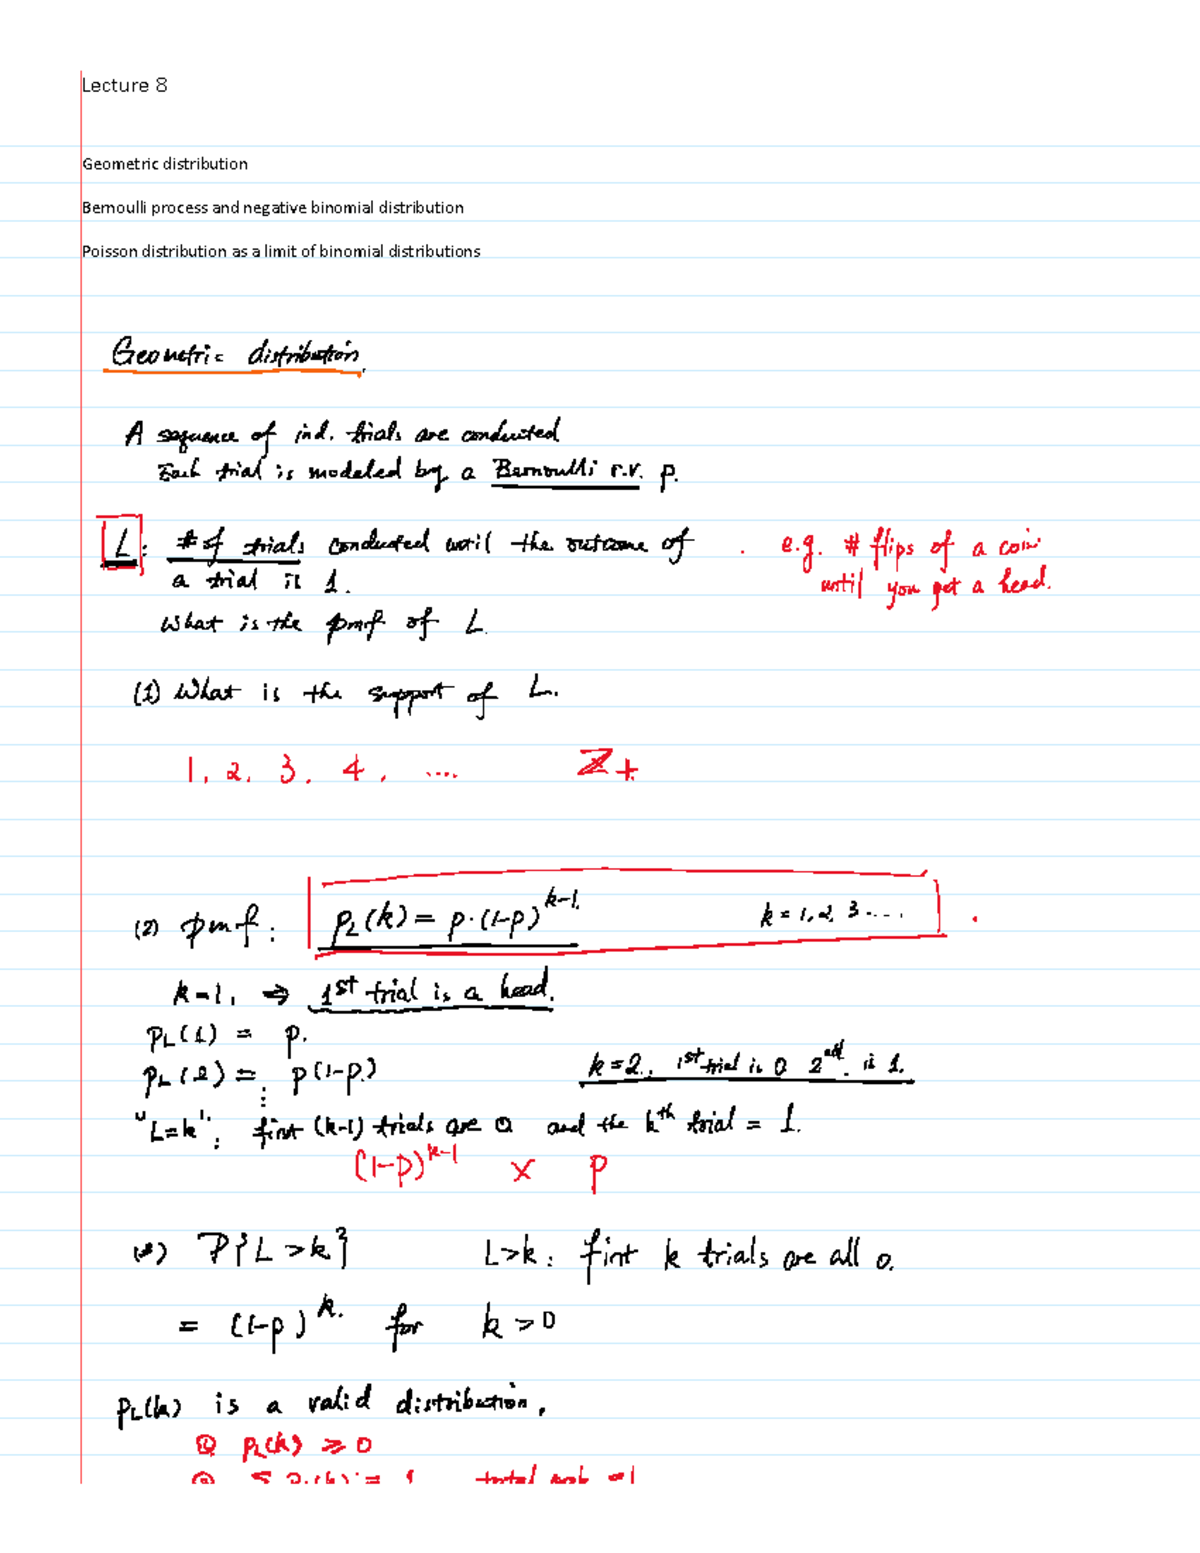 Lecture 8
Geometric distribution
Bernoulli process and negative binomial distribution
Poisson distribution as a limit of binomial distributions
Geometric distribution.
A sequence of ind. trials are conducted
Each trial is modeled by a Bernoulli r.v. p.
L: # of trials conducted until the outcome of
a trial is 1.
e.g. # flips of a coin
until you get a head.
What is the pmf of L.
(1) What is the support of L.
1, 2, 3, 4, .... Z+
(2) pmf: p_L(k) = p·(1-p)^{k-1}. k = 1, 2, 3 ....
k=1, ⇒ 1st trial is a head.
p_L(1) = p.
p_L(2) = p(1-p) k=2, 1st trial is 0 2nd is 1.
⋮
"L=k": first (k-1) trials are 0 and the kth trial = 1.
(1-p)^{k-1} × p
P{L>k} L>k: first k trials are all 0.
= (1-p)^k. for k > 0
p_L(k) is a valid distribution.
① p_L(k) ≥ 0
② Σ p_L(k) = 1 total prob =1